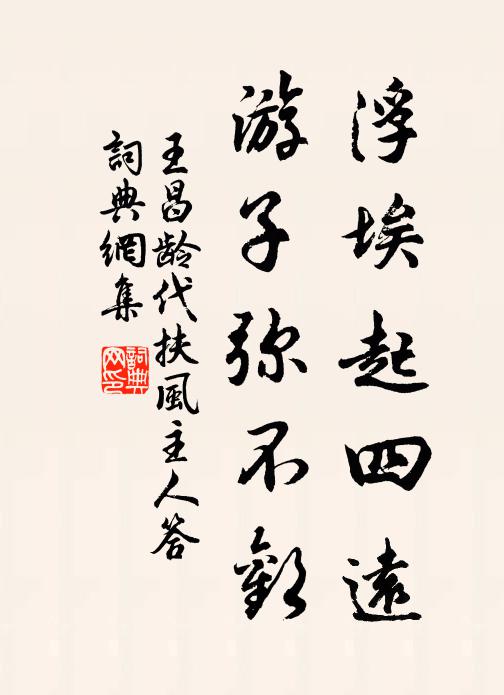 浮埃起四遠
游子弥不歡
王昌齡代扶風主人答
詞典網集
詞典
网印